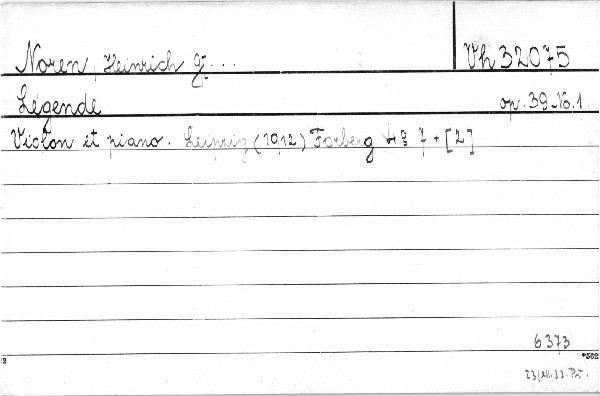 Noren, Heinrich G. ...
Vh 32075
Légende
op. 39 No. 1.
Violon et piano. Leipzig (1912) Forberg 4º 7 + [2]
6373
2
*502